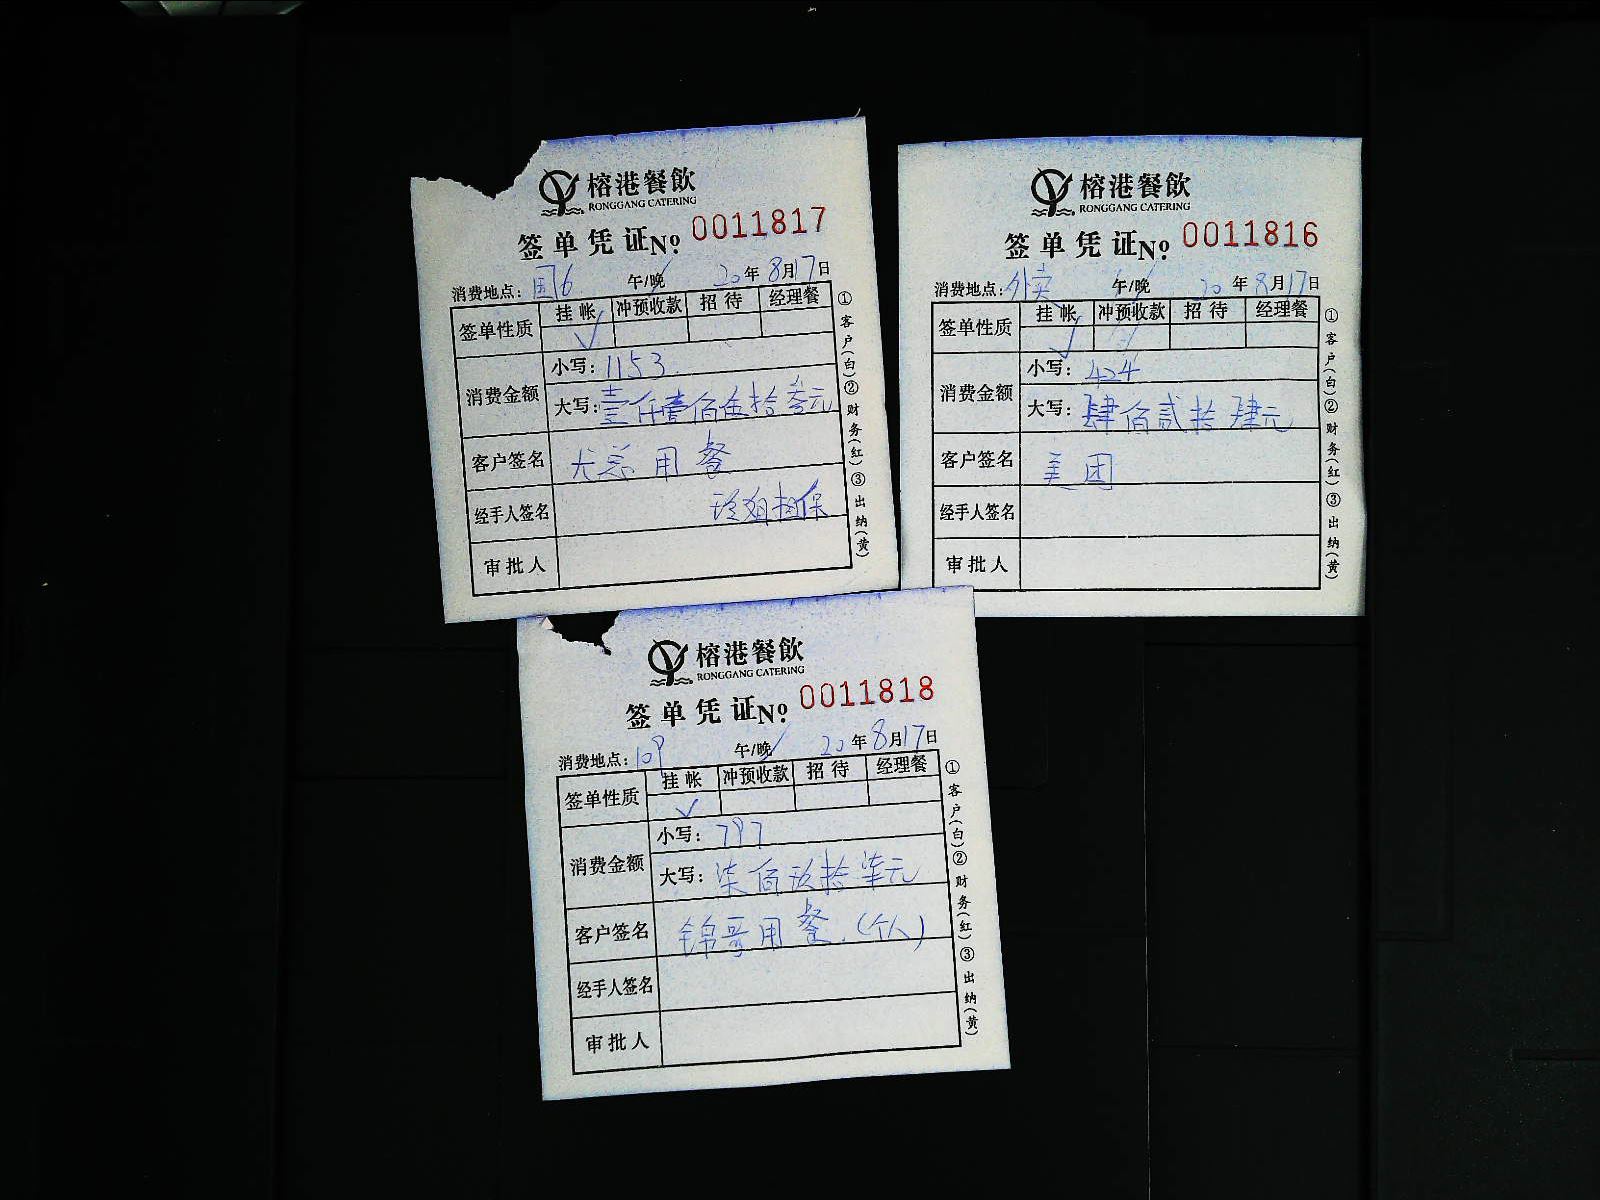 榕港餐飲
RONGGANG CATERING
签单凭证No. 0011817
消费地点: 围6 午/晚 20年8月17日
签单性质 挂帐 冲预收款 招待 经理餐
√
消费金额 小写: 1153
大写: 壹仟壹佰伍拾叁元
客户签名 尤总用餐
经手人签名 玲姐担保
审批人
①客户(白)②财务(红)③出纳(黄)
榕港餐飲
RONGGANG CATERING
签单凭证No. 0011816
消费地点: 外卖 午/晚 20年8月17日
签单性质 挂帐 冲预收款 招待 经理餐
√
消费金额 小写: 424
大写: 肆佰贰拾肆元
客户签名 美团
经手人签名
审批人
①客户(白)②财务(红)③出纳(黄)
榕港餐飲
RONGGANG CATERING
签单凭证No. 0011818
消费地点: 109 午/晚 20年8月17日
签单性质 挂帐 冲预收款 招待 经理餐
√
消费金额 小写: 797
大写: 柒佰玖拾柒元
客户签名 锦哥用餐.(个人)
经手人签名
审批人
①客户(白)②财务(红)③出纳(黄)